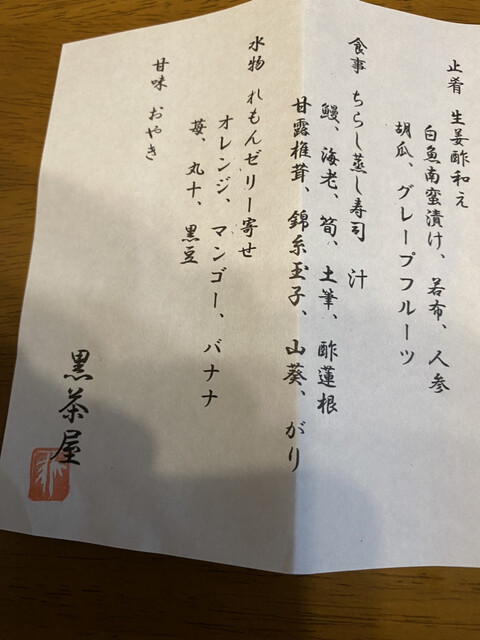 止肴 生姜酢和え
白魚南蛮漬け、若布、人参
胡瓜、グレープフルーツ
食事 ちらし蒸し寿司 汁
鰻、海老、筍、土筆、酢蓮根
甘露椎茸、錦糸玉子、山葵、がり
水物 れもんゼリー寄せ
オレンジ、マンゴー、バナナ
苺、丸十、黒豆
甘味 おやき
黒茶屋